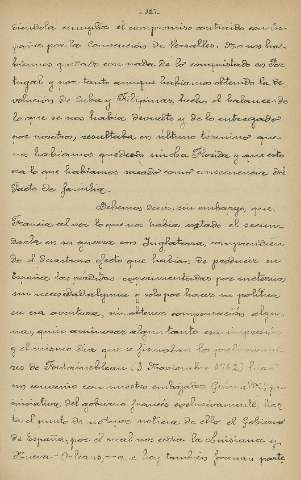 - 127 -
ciéndola cumplir el compromiso contraído con Es-
paña por la Convención de Versalles. No nos ha-
bíamos quedado con nada de lo conquistado en Por-
tugal y por tanto aunque habíamos obtenido la de-
volución de Cuba y Filipinas, hecho el balance de
lo que se nos había devuelto y de lo entregado
por nosotros, resultaba en último término que
nos habíamos quedado sin la Florida y que esto
era lo que habíamos sacado como consecuencia del
Pacto de familia.
Debemos decir, sin embargo, que
Francia al ver lo que nos había costado el secun-
darla en su guerra con Inglaterra, comprendien-
do el desastroso efecto que habían de producir en
España las pérdidas experimentadas por nosotros,
sin necesidad alguna y solo por hacer su política
en esa aventura, sin obtener compensación algu-
na, quiso aminorar algun tanto esa impresión
y el mismo día que se firmaban los prelimina-
res de Fontainebleau (3 Noviembre 1762)
un convenio con nuestro embajador Grimaldi, por
iniciativa del gobierno francés exclusivamente, has-
ta el punto de no tener noticia de ello el Gobierno
de España, por el cual nos cedía la Luisiana y
Nueva-Orleans, que hoy también forman parte